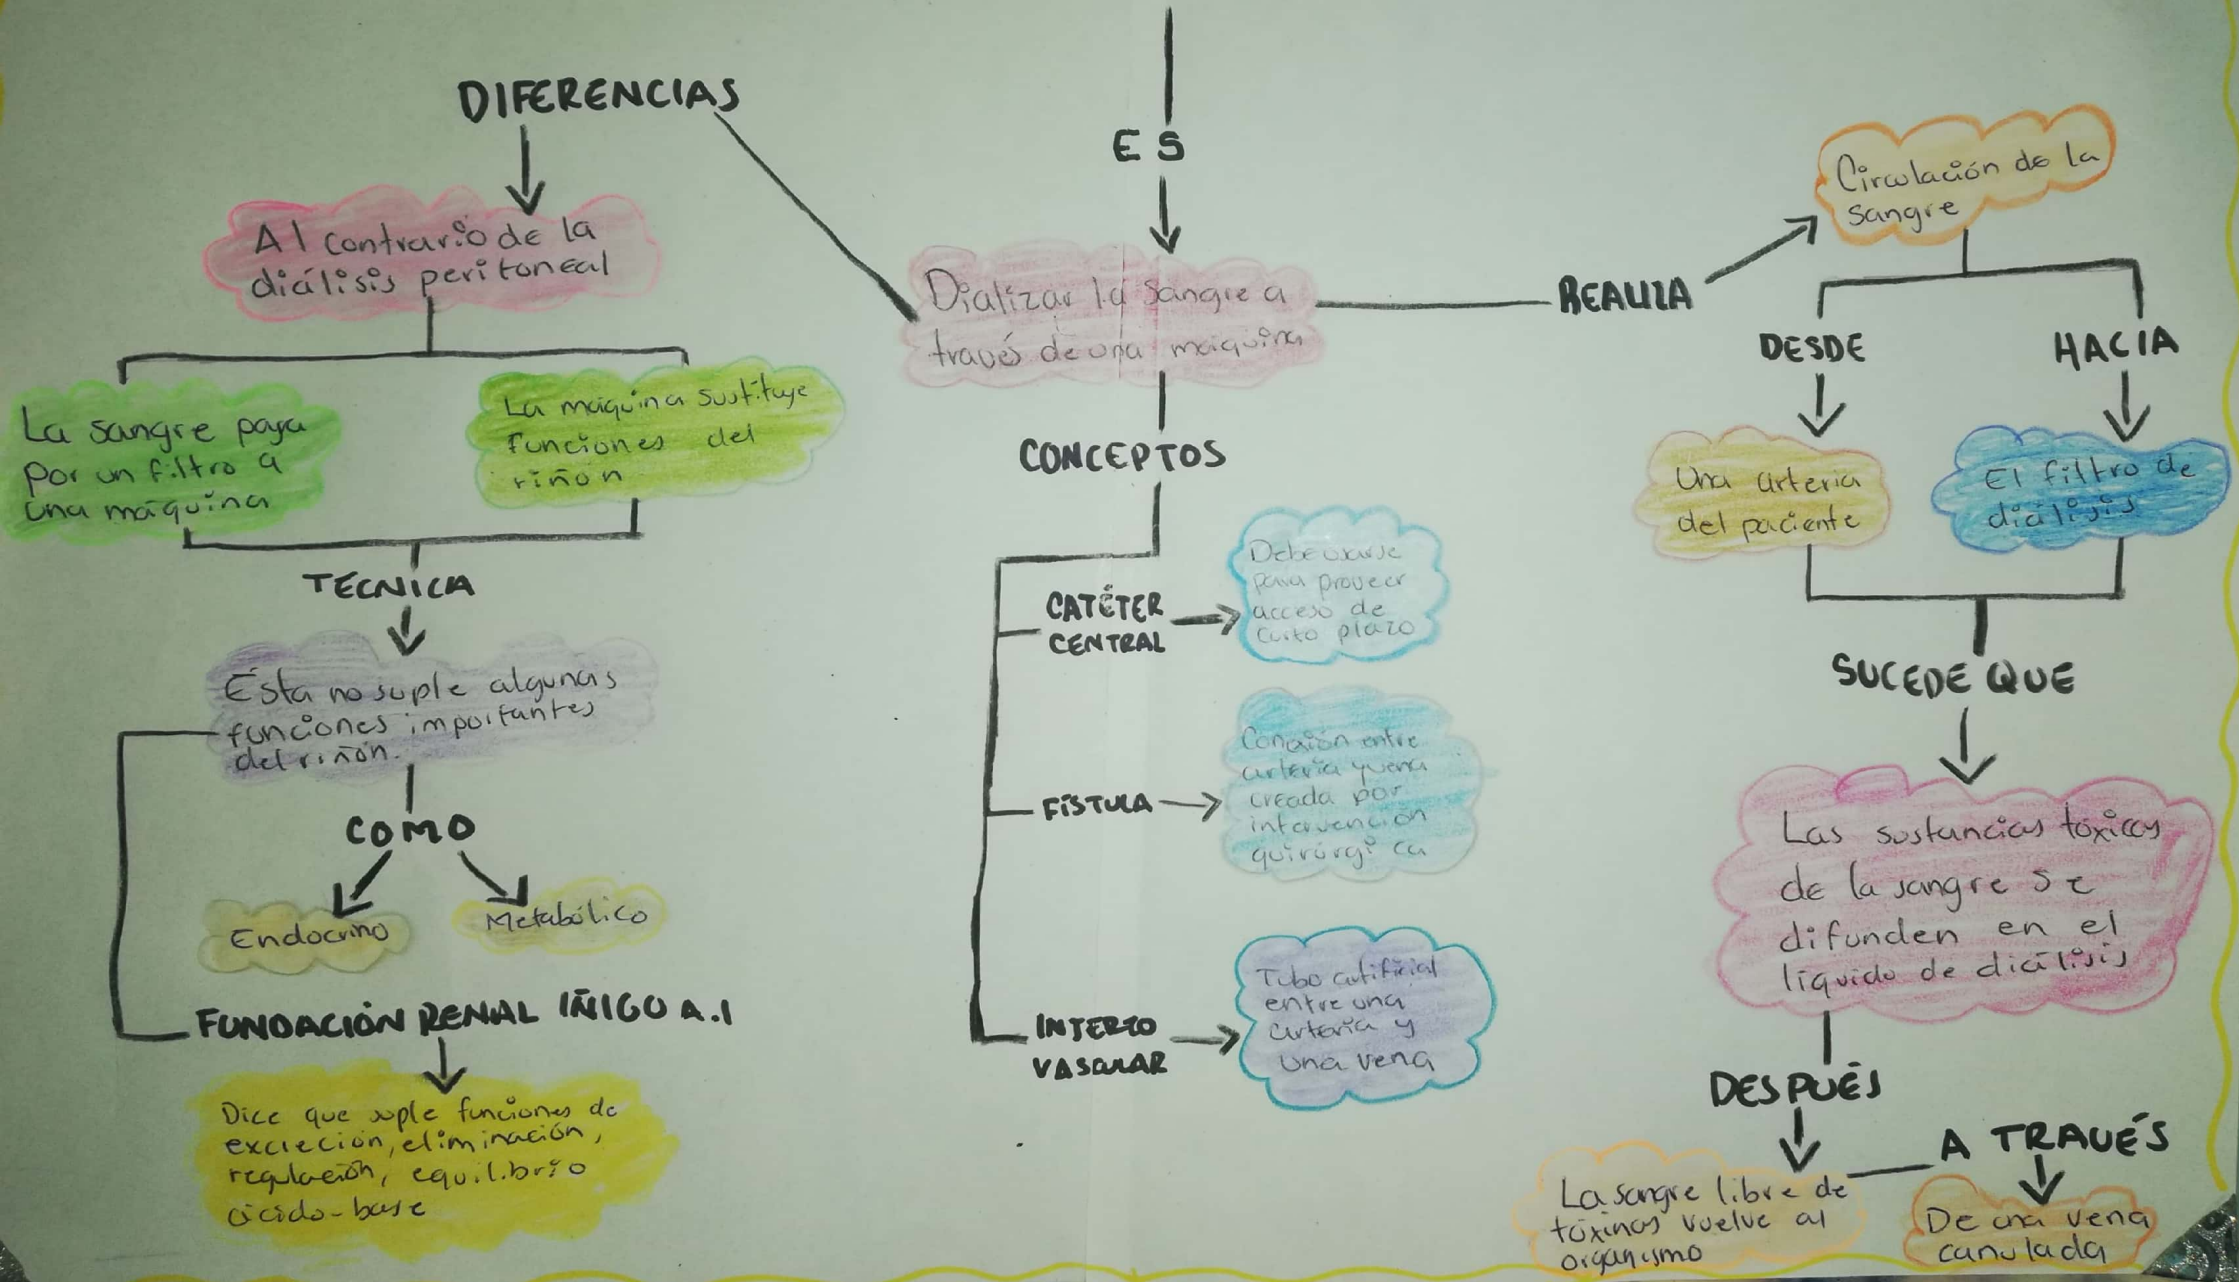 DIFERENCIAS
Al contrario de la
diálisis peritoneal
La sangre pasa
por un filtro a
una máquina
La máquina sustituye
funciones del
riñón
TÉCNICA
Esta no suple algunas
funciones importantes
del riñón.
COMO
Endocrino
Metabólico
FUNDACIÓN RENAL IÑIGO A.I
Dice que suple funciones de
excreción, eliminación,
regulación, equilibrio
ácido-base
ES
Dializar la sangre a
través de una máquina
CONCEPTOS
CATÉTER
CENTRAL
Debe usarse
para proveer
acceso de
corto plazo
FÍSTULA
Conexión entre
arteria y vena
creada por
intervención
quirúrgica
INJERTO
VASCULAR
Tubo artificial
entre una
arteria y
una vena
REALIZA
Circulación de la
sangre
DESDE
Una arteria
del paciente
HACIA
El filtro de
diálisis
SUCEDE QUE
Las sustancias tóxicas
de la sangre se
difunden en el
líquido de diálisis
DESPUÉS
La sangre libre de
toxinas vuelve al
organismo
A TRAVÉS
De una vena
canulada